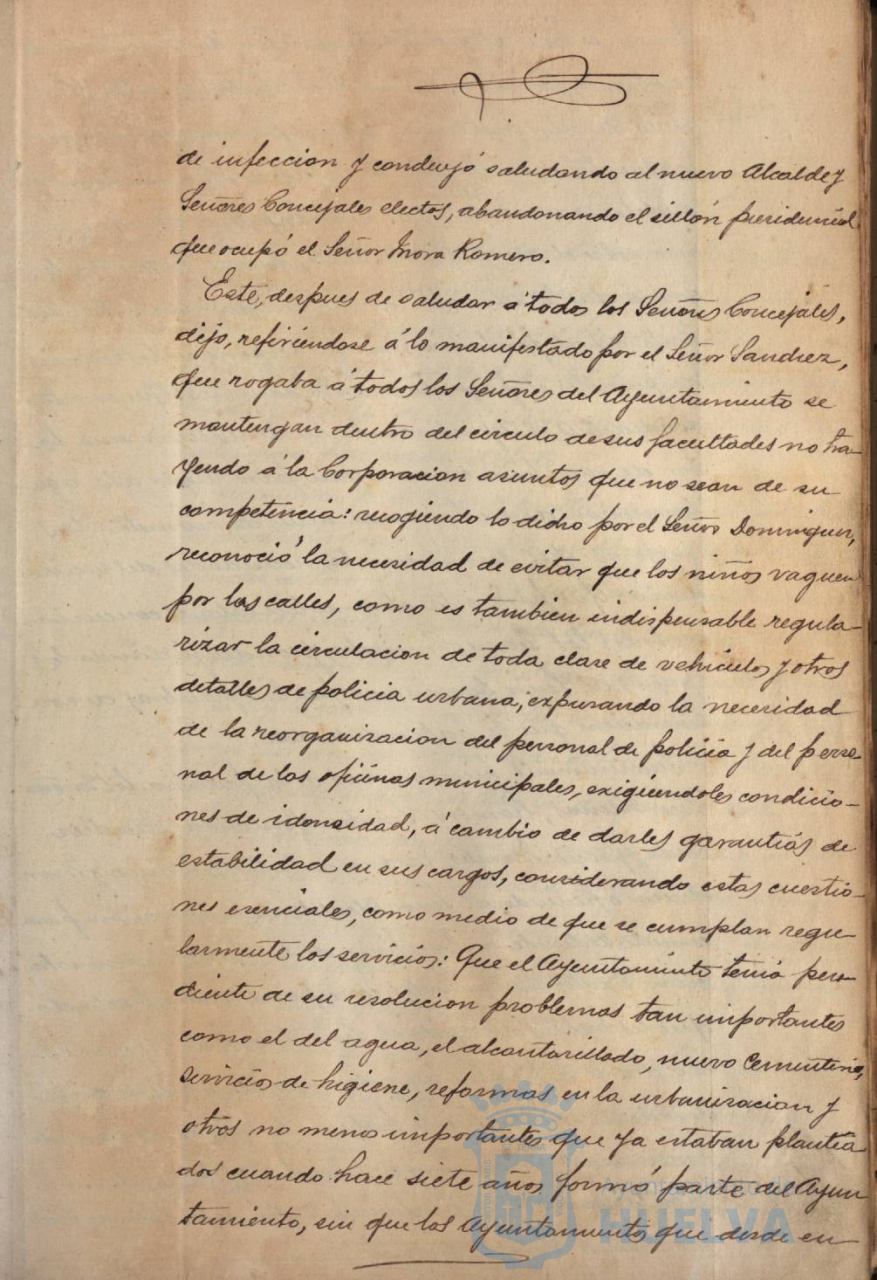 de infeccion y concluyó saludando al nuevo Alcalde y
Señores Concejales electos, abandonando el sillón presidencial
que ocupó el Señor Mora Romero.
Este, despues de saludar á todos los Señores Concejales,
dijo, refiriéndose á lo manifestado por el Señor Sanchez,
que rogaba á todos los Señores del Ayuntamiento se
mantengan dentro del circulo de sus facultades no tra-
yendo á la Corporacion asuntos que no sean de su
competencia: recogiendo lo dicho por el Señor Dominguez,
reconoció la necesidad de evitar que los niños vaguen
por las calles, como es tambien indispensable regula-
rizar la circulacion de toda clase de vehiculos y otros
detalles de policia urbana; expresando la necesidad
de la reorganizacion del personal de policia y del perso-
nal de las oficinas municipales, exigiendoles condicio-
nes de idoneidad, á cambio de darles garantías de
estabilidad en sus cargos, considerando estas cuestio-
nes esenciales, como medio de que se cumplan regu-
larmente los servicios: Que el Ayuntamiento tenia pen-
diente de su resolucion problemas tan importantes
como el del agua, el alcantarillado, nuevo Cementerio,
servicios de higiene, reformas en la urbanizacion y
otros no menos importantes que ya estaban plantea
dos cuando hace siete años formó parte del Ayun
tamiento, sin que los Ayuntamientos que desde en-
HUELVA